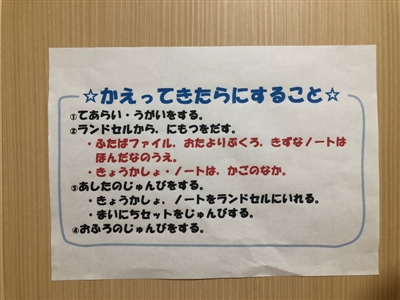 ☆かえってきたらにすること☆
①てあらい・うがいをする。
②ランドセルから、にもつをだす。
・ふたばファイル、おたよりぶくろ、きずなノートは
ほんだなのうえ。
・きょうかしょ・ノートは、かごのなか。
③あしたのじゅんびをする。
・きょうかしょ、ノートをランドセルにいれる。
・まいにちセットをじゅんびする。
④おふろのじゅんびをする。